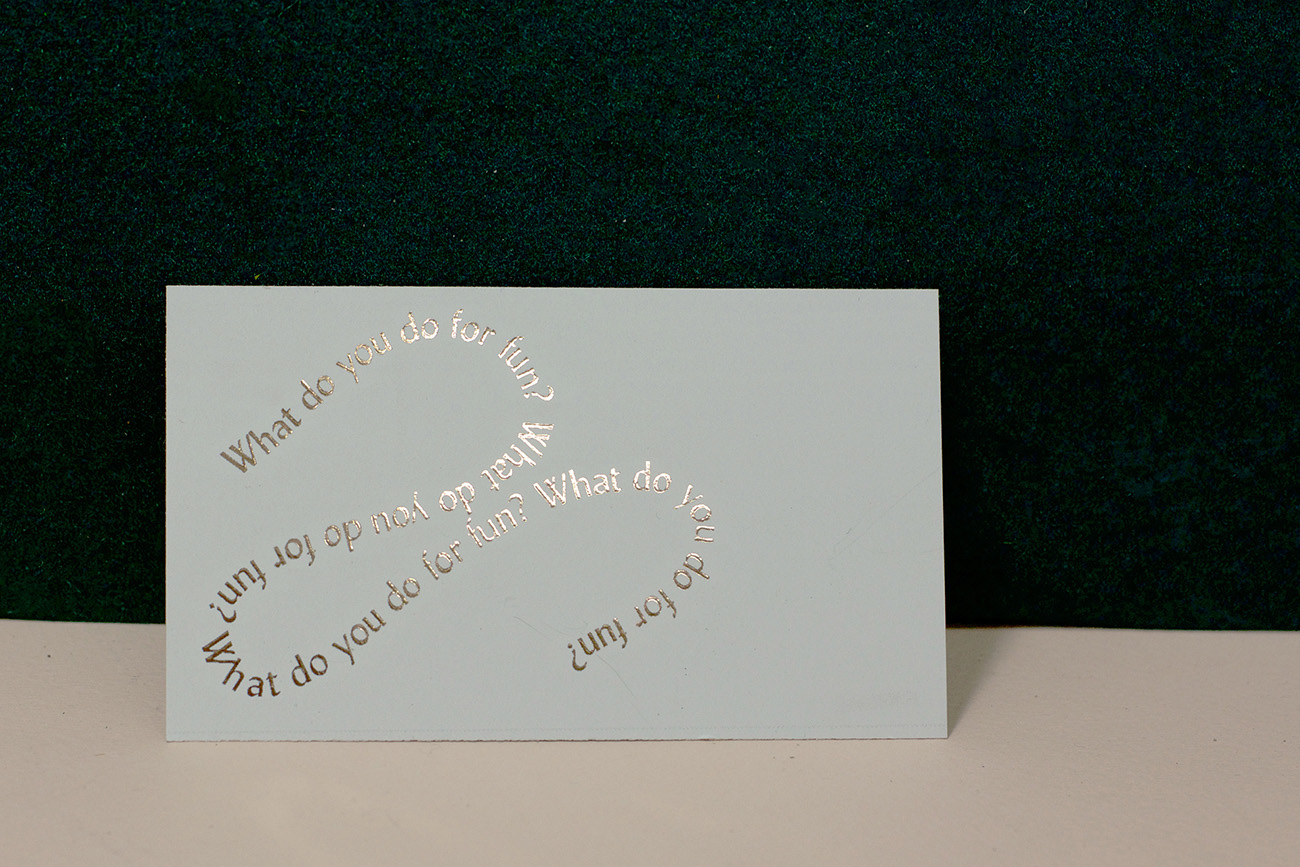 What do you do for fun? What do you do for fun? What do you do for fun? What do you do for fun?